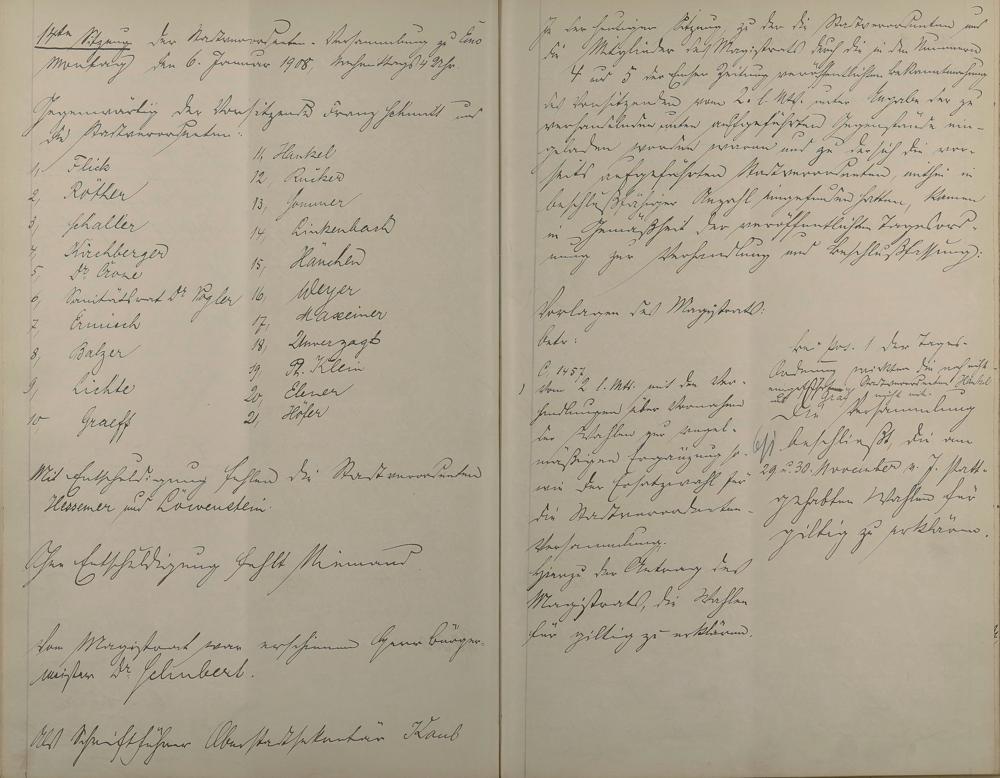 14te Sitzung der Stadtverordneten-Versammlung zu Ems
Montag den 6. Januar 1908, Nachmittags 4 Uhr.
Gegenwärtig der Vorsitzende Franz Schmitt und
die Stadtverordneten:
1, Flick
2, Röther
3, Schaller
4, Kirchberger
5, Dr. Crone
6, Sanitätsrat Dr. Vogler
7, Ermisch
8, Balzer
9, Lichte
10 Graeff
11, Henkel
12, Rücker
13, Sommer
14, Linkenbach
15, Hänchen
16, Weyer
17, Maxeiner
18, Unverzagt
19, Ph. Klein
20, Ebner
21, Höfer
Mit Entschuldigung fehlen die Stadtverordneten
Hessemer und Löwenstein.
Ohne Entschuldigung fehlt Niemand
Vom Magistrat war erschienen Herr Bürger-
meister Dr. Schubert.
Als Schriftführer Oberstadtsekretär Kaul
In der heutigen Sitzung zu der die Stadtverordneten und
die Mitglieder des Magistrats durch die in den Nummern
4 und 5 der Emser Zeitung veröffentlichten Bekanntmachung
des Vorsitzenden vom 2. l. Mts. unter Angabe der zu
verhandelnden unten aufgeführten Gegenstände ein-
geladen worden waren und zu der sich die vor-
seits aufgeführten Stadtverordneten, mithin in
beschlußfähiger Anzahl eingefunden hatten, kamen
in Gemäßheit der veröffentlichten Tagesord-
nung zur Verhandlung und Beschlußfassung:
Vorlagen des Magistrats:
betr:
C 1457
1 vom 2 l. Mts. mit den Ver-
handlungen über Vornahme
der Wahlen zur regel-
mäßigen Ergänzung so-
wie der Ersatzwahl für
die Stadtverordneten-
Versammlung.
Hierzu der Antrag des
Magistrats, die Wahlen
für giltig zu erklären.
Bei Pos. 1 der Tages-
Ordnung wirkten die
Stadtverordneten Henkel
nicht mit.
Die Versammlung
beschließt, die am
29. u. 30. November v. J. statt-
gehabten Wahlen für
giltig zu erklären.